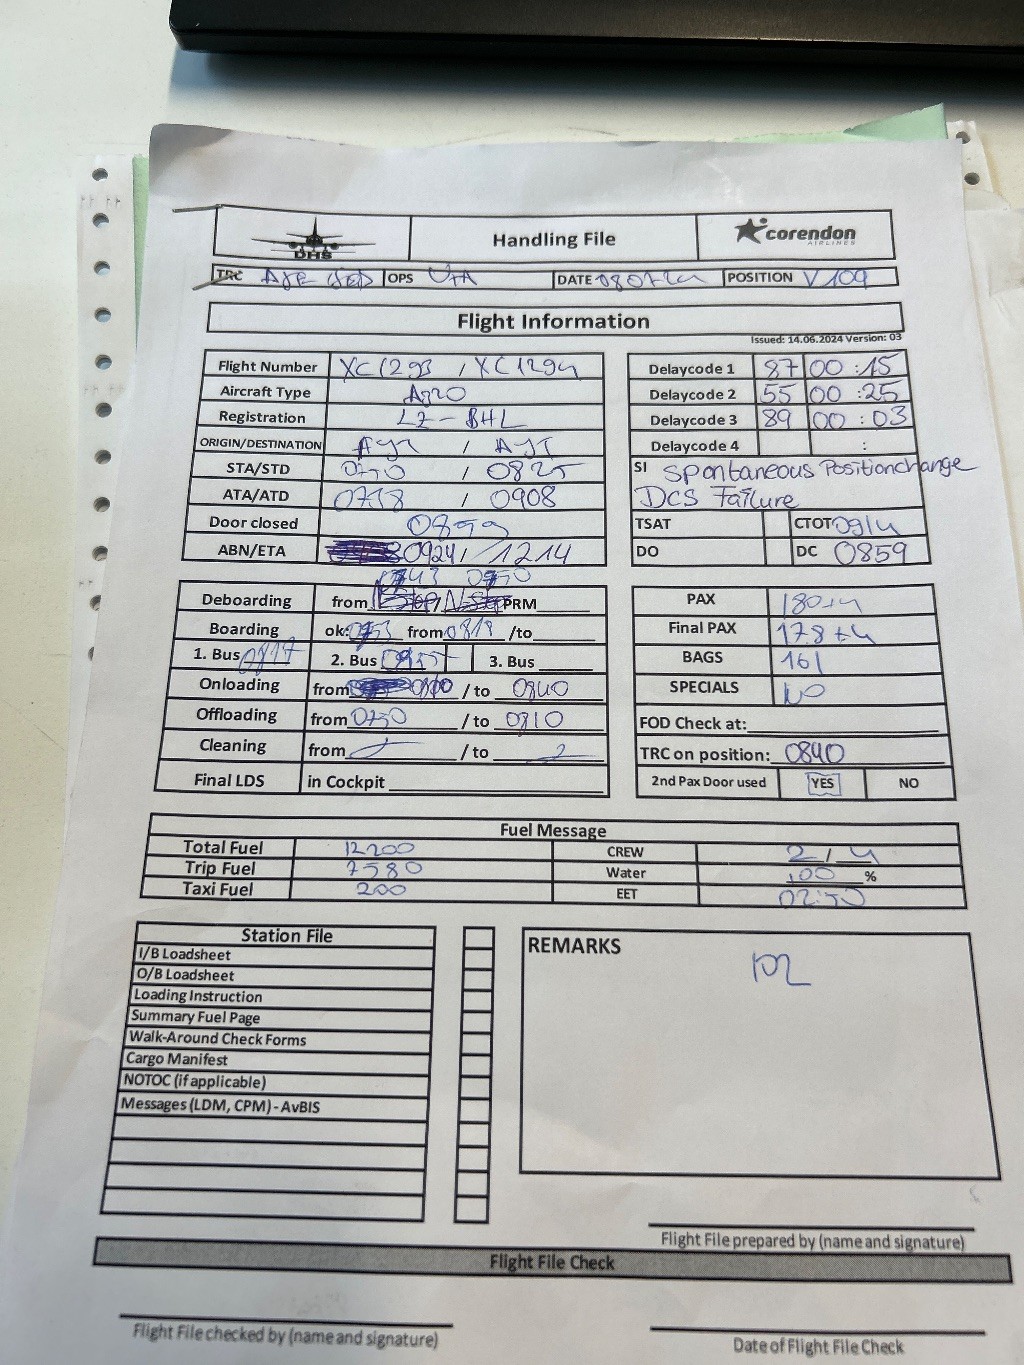 DHS Handling File corendon AIRLINES
TRC OPS DATE POSITION V109
Flight Information
Issued: 14.06.2024 Version: 03
Flight Number XC1293 / XC1294
Aircraft Type A320
Registration LZ-BHL
ORIGIN/DESTINATION AYT / AYT
STA/STD 0750 / 0825
ATA/ATD 0738 / 0908
Door closed
ABN/ETA 0924 / 1214
Delaycode 1 87 00 :15
Delaycode 2 55 00 :25
Delaycode 3 89 00 :03
Delaycode 4 :
SI Spontaneous Positionchange
DCS Failure
TSAT CTOT 0914
DO DC 0859
0743 0750
Deboarding from PRM
Boarding ok: from 0818 /to
1. Bus 0817 2. Bus 3. Bus
Onloading from /to 0840
Offloading from 0750 /to 0810
Cleaning from /to
Final LDS in Cockpit
PAX 180+4
Final PAX 178+4
BAGS 161
SPECIALS NO
FOD Check at:
TRC on position: 0840
2nd Pax Door used YES NO
Fuel Message
Total Fuel 12200 CREW 2 / 4
Trip Fuel 7580 Water 100 %
Taxi Fuel 200 EET 02:50
Station File
I/B Loadsheet
O/B Loadsheet
Loading Instruction
Summary Fuel Page
Walk-Around Check Forms
Cargo Manifest
NOTOC (if applicable)
Messages (LDM, CPM) - AvBIS
REMARKS
Flight File prepared by (name and signature)
Flight File Check
Flight File checked by (name and signature)
Date of Flight File Check